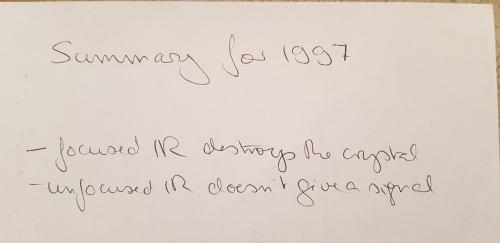 Summary for 1997
- focused IR destroys the crystal
- unfocused IR doesn't give a signal